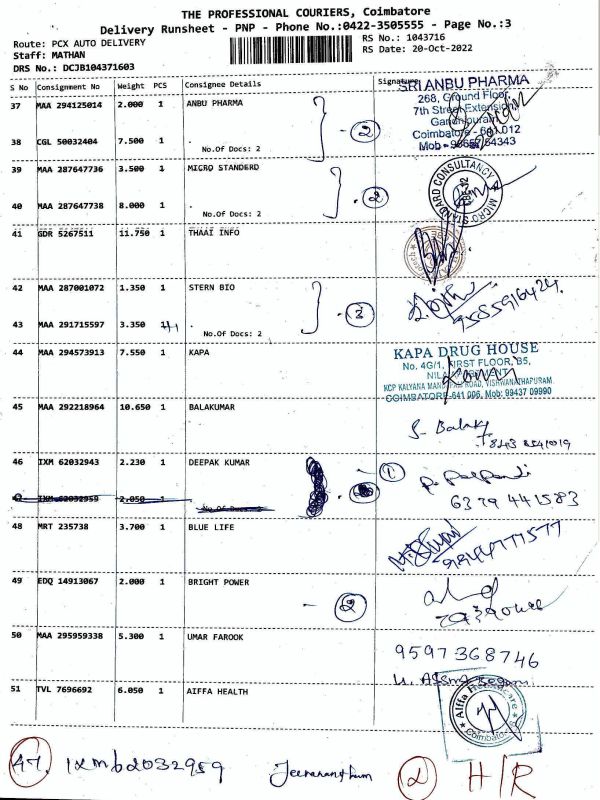 THE PROFESSIONAL COURIERS, Coimbatore
Delivery Runsheet - PNP - Phone No.:0422-3505555 - Page No.:3
Route: PCX AUTO DELIVERY RS No.: 1043716
Staff: MATHAN RS Date: 20-Oct-2022
DRS No.: DCJB104371603
S No Consignment No Weight PCS Consignee Details Signature
SRI ANBU PHARMA
37 MAA 294125014 2.000 1 ANBU PHARMA
268, Ground Floor,
7th Street Extension,
2
Coimbatore - 641 012
38 CGL 50032404 7.500 1 .
No.Of Docs: 2
39 MAA 287647736 3.500 1 MICRO STANDERD
MICRO STANDARD CONSULTANCY
2
40 MAA 287647738 8.000 1 .
No.Of Docs: 2
41 GDR 5267511 11.750 1 THAAI INFO
42 MAA 287001072 1.350 1 STERN BIO
9585916424
43 MAA 291715597 3.350 .
No.Of Docs: 2
44 MAA 294573913 7.550 1 KAPA
KAPA DRUG HOUSE
No. 4G/1, FIRST FLOOR, B5,
COIMBATORE-641 006, Mob: 99437 09990
45 MAA 292218964 10.650 1 BALAKUMAR
S. Balaky
46 IXM 62032943 2.230 1 DEEPAK KUMAR
1
47 IXM 62032959 2.050
No.Of Docs: 2
6379 441583
48 MRT 235738 3.700 1 BLUE LIFE
49 EDQ 14913067 2.000 1 BRIGHT POWER
2
50 MAA 295959338 5.300 1 UMAR FAROOK
9597368746
51 TVL 7696692 6.050 1 AIFFA HEALTH
Aiffa Healthcare
Coimbatore
47. IXM62032959 2 H/R